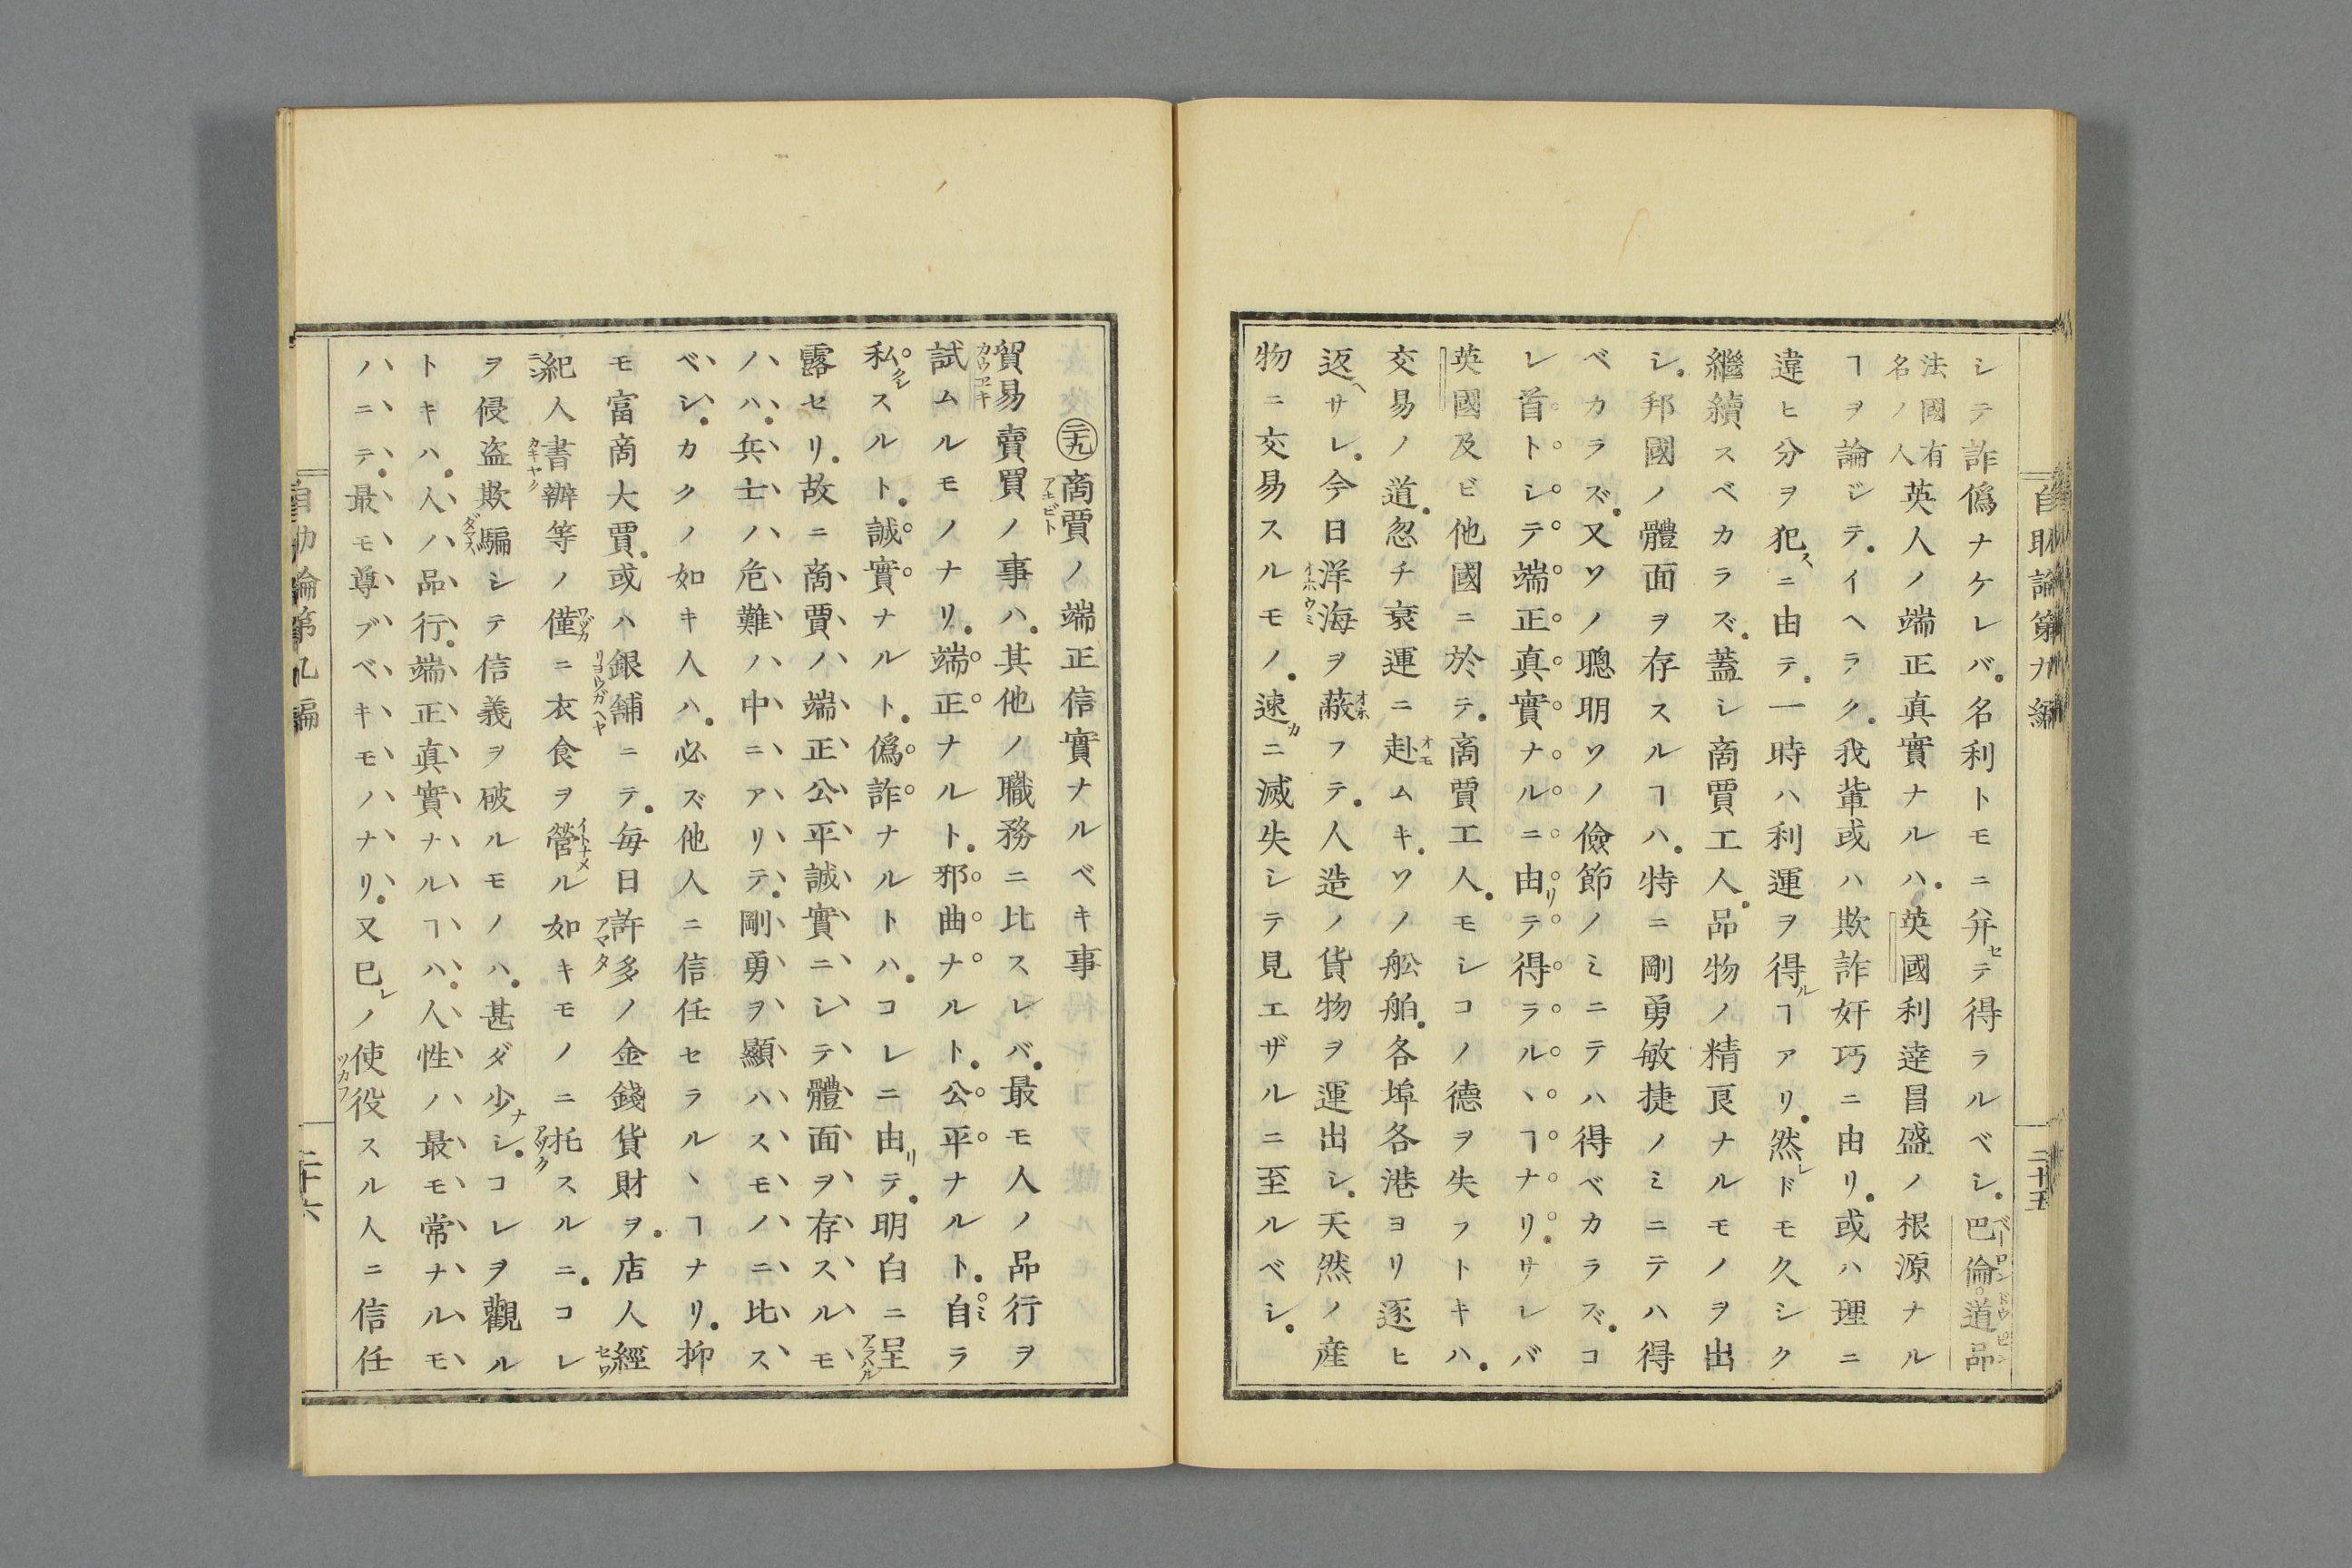 自助論第九編
二十五
シテ詐偽ナケレバ。名利トモニ幷セテ得ラルベシ。巴倫。道品
法國有名ノ人英人ノ端正真實ナルハ。英國利達昌盛ノ根源ナル
ヿヲ論ジテ。イヘラク。我輩或ハ欺詐奸巧ニ由リ。或ハ理ニ
違ヒ分ヲ犯スニ由テ。一時ハ利運ヲ得ルヿアリ。然レドモ久シク
繼續スベカラズ。蓋シ商賈工人。品物ノ精良ナルモノヲ出
シ。邦國ノ體面ヲ存スルヿハ。特ニ剛勇敏捷ノミニテハ得
ベカラズ。又ソノ聰明ソノ儉節ノミニテハ得ベカラズ。コ
レ首トシテ端正真實ナルニ由リテ得ラルヽヿナリ。サレバ
英國及ビ他國ニ於テ。商賈工人。モシコノ德ヲ失フトキハ。
交易ノ道。忽チ衰運ニ赴ムキ。ソノ舩舶。各埠各港ヨリ逐ヒ
返ヘサレ。今日洋海ヲ蔽フテ。人造ノ貨物ヲ運出シ。天然ノ産
物ニ交易スルモノ。速カニ滅失シテ見エザルニ至ルベシ。
㊁九商賈ノ端正信實ナルベキ事
貿易賣買ノ事ハ。其他ノ職務ニ比スレバ。最モ人ノ品行ヲ
試ムルモノナリ。端正ナルト。邪曲ナルト。公平ナルト。自ラ
私スルト。誠實ナルト。偽詐ナルトハ。コレニ由リテ。明白ニ呈
露セリ。故ニ商賈ノ端正公平誠實ニシテ體面ヲ存スルモ
ノハ。兵士ノ危難ノ中ニアリテ。剛勇ヲ顯ハスモノニ比ス
ベシ。カクノ如キ人ハ。必ズ他人ニ信任セラルヽヿナリ。抑
モ富商大賈。或ハ銀舗ニテ。每日許多ノ金錢貨財ヲ。店人經
紀人書辨等ノ僅ニ衣食ヲ營ル如キモノニ托スルニ。コレ
ヲ侵盗欺騙シテ信義ヲ破ルモノハ。甚ダ少ナシ。コレヲ觀ル
トキハ。人ノ品行。端正真實ナルヿハ。人性ノ最モ常ナルモ
ノニテ。最モ尊ブベキモノナリ。又已レノ使役スル人ニ信任
自助論第九編
二十六